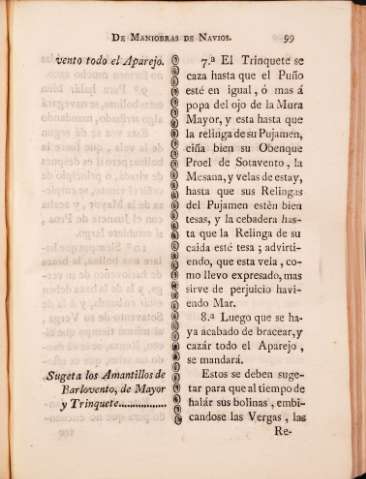 DE MANIOBRAS DE NAVIOS. 99
vento todo el Aparejo.
7.ª El Trinquete se
caza hasta que el Puño
esté en igual, ó mas á
popa del ojo de la Mura
Mayor, y esta hasta que
la relinga de su Pujamen,
ciña bien su Obenque
Proel de Sotavento, la
Mesana, y velas de estay,
hasta que sus Relingas
del Pujamen estèn bien
tesas, y la cebadera has-
ta que la Relinga de su
caida esté tesa; advirti-
endo, que esta vela, co-
mo llevo expresado, mas
sirve de perjuicio havi-
endo Mar.
8.ª Luego que se ha-
ya acabado de bracear, y
cazár todo el Aparejo,
se mandará.
Sugeta los Amantillos de
Barlovento, de Mayor
y Trinquete.................
Estos se deben suge-
tar para que al tiempo de
halár sus bolinas, embi-
candose las Vergas, las
Re-